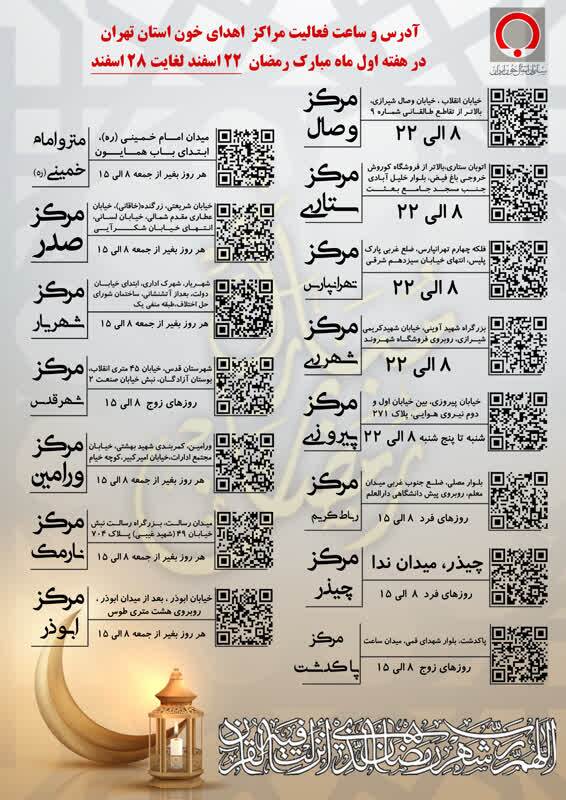 آدرس و ساعت فعالیت مراکز اهدای خون استان تهران
در هفته اول ماه مبارک رمضان ۲۲ اسفند لغایت ۲۸ اسفند
مرکز وصال
خیابان انقلاب، خیابان وصال شیرازی،
بالاتر از تقاطع طالقانی شماره ۹
۸ الی ۲۲
مرکز ستاری
اتوبان ستاری،بالاتر از فروشگاه کوروش
خروجی باغ فیض، بلوار خلیل آبادی
جنب مسجد جامع بعثت
۸ الی ۲۲
مرکز تهرانپارس
فلکه چهارم تهرانپارس، ضلع غربی پارک
پلیس، انتهای خیابان سیزدهم شرقی
۸ الی ۲۲
مرکز شهرری
بزرگراه شهید آوینی، خیابان شهیدکریمی
شیرازی، روبروی فروشگاه شهروند
۸ الی ۲۲
مرکز پیروزی
خیابان پیروزی، بین خیابان اول و
دوم نیروی هوایی، پلاک ۲۷۱
شنبه تا پنج شنبه ۸ الی ۲۲
مرکز رباط کریم
بلوار مصلی، ضلع جنوب غربی میدان
معلم، روبروی پیش دانشگاهی دارالعلم
روزهای فرد ۸ الی ۱۵
مرکز چیذر
چیذر، میدان ندا
روزهای فرد ۸ الی ۱۵
مرکز پاکدشت
پاکدشت، بلوار شهدای قمی، میدان ساعت
روزهای زوج ۸ الی ۱۵
مترو امام خمینی (ره)
میدان امام خمینی (ره)،
ابتدای باب همایون
هر روز بغیر از جمعه ۸ الی ۱۵
مرکز صدر
خیابان شریعتی، زرگنده(خاقانی)، خیابان
عطاری مقدم شمالی، خیابان لسانی،
انتهای خیابان شکرآیی
هر روز بغیر از جمعه ۸ الی ۱۵
مرکز شهریار
شهریار، شهرک اداری، ابتدای خیابان
دولت، بعداز آتشنشانی، ساختمان شورای
حل اختلاف،طبقه منفی یک
هر روز بغیر از جمعه ۸ الی ۱۵
مرکز شهرقدس
شهرستان قدس، خیابان ۴۵ متری انقلاب،
بوستان آزادگان، نبش خیابان صنعت ۲
روزهای زوج ۸ الی ۱۵
مرکز ورامین
ورامین، کمربندی شهید بهشتی، خیابان
مجتمع ادارات، خیابان امیرکبیر، کوچه خیام
هر روز بغیر از جمعه ۸ الی ۱۵
مرکز نارمک
میدان رسالت، بزرگراه رسالت نبش
خیابان ۴۹ (شهید غیبی) پلاک ۷۰۴
هر روز بغیر از جمعه ۸ الی ۱۵
مرکز ابوذر
خیابان ابوذر، بعد از میدان ابوذر،
روبروی هشت متری طوس
هر روز بغیر از جمعه ۸ الی ۱۵